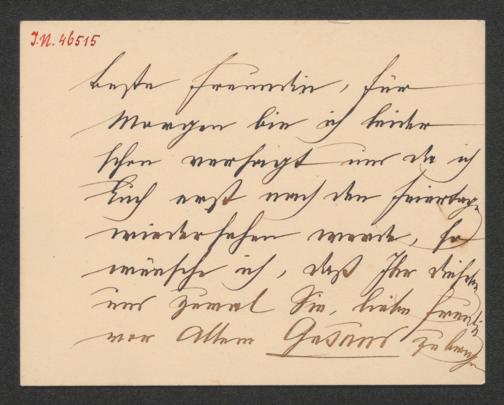 J.N. 46515
Beste Freundin, für
Morgen bin ich leider
schon versagt und da ich
Euch erst nach den Feiertagen
wiedersehen werde, so
wünsche ich, daß Ihr dieselben
und zumal Sie, liebe Freundin
vor Allem Gesund zubringen